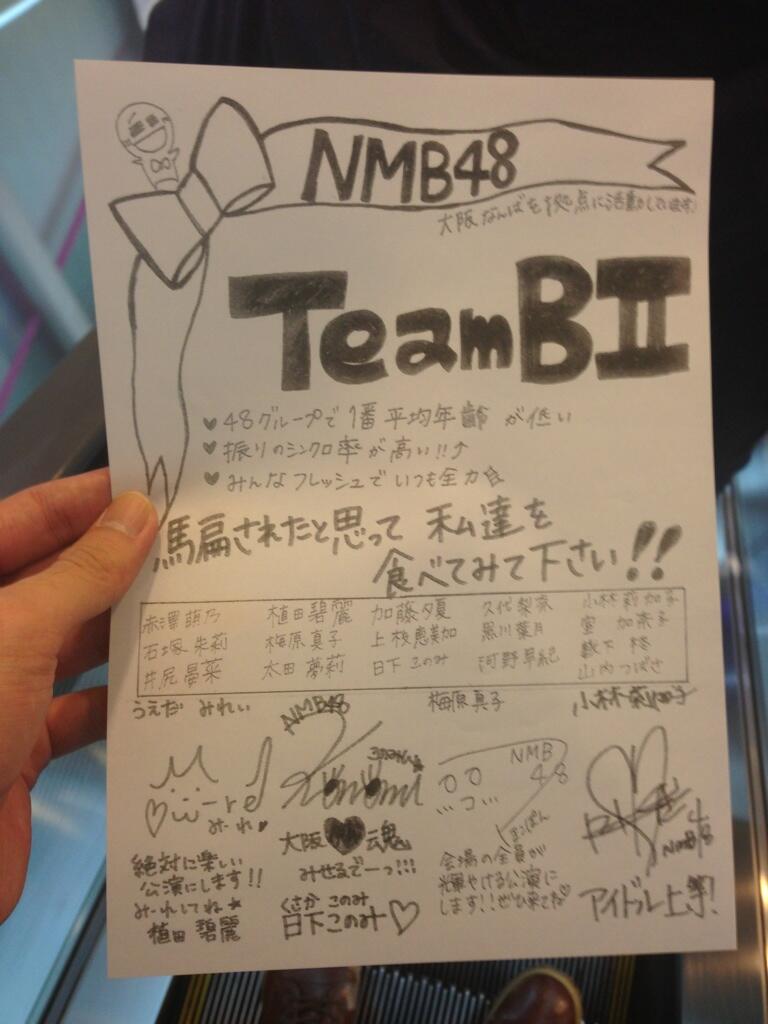 NMB48
大阪なんばを拠点に活動しています!
TeamBII
♥48グループで1番平均年齢が低い
♥振りのシンクロ率が高い!!↑
♥みんなフレッシュでいつも全力☆
馬扁されたと思って 私達を
食べてみて下さい!!
赤澤萌乃 植田碧麗 加藤夕夏 久代梨奈 小林莉加子
石塚朱莉 梅原真子 上枝恵美加 黒川葉月 室加奈子
井尻晏菜 太田夢莉 日下このみ 河野早紀 薮下柊
山内つばさ
うえだ みれい
NMB48
梅原真子
小林莉加子
み-re
みーれ♥
絶対に楽しい
公演にします!!
みーれしてね★
植田 碧麗
このみん★
Konomi
大阪♥魂
みせるでーっ!!!
くさか このみ
日下このみ♡
NMB
48
まこぱん
会場の全員が
輝やける公演に
します!!ぜひ来てね♡
NMB48
アイドル上等!